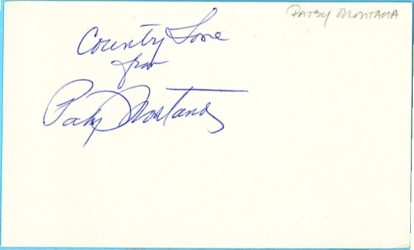 PATSY MONTANA
Country Love
from
Patsy Montana